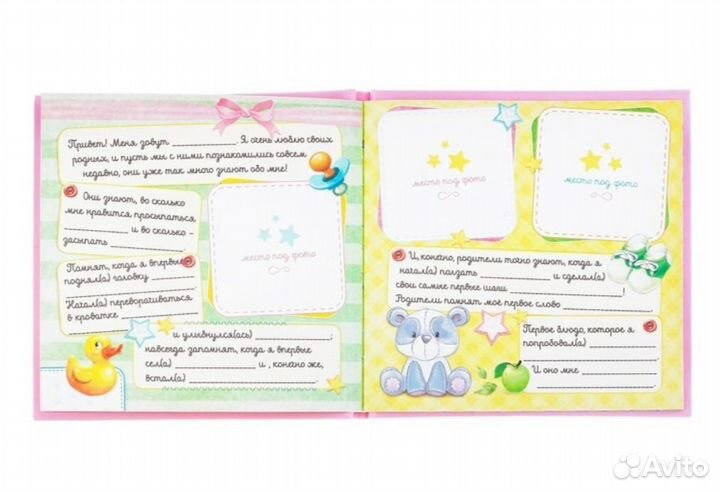 Привет! Меня зовут ____________. Я очень люблю своих
родных, и пусть мы с ними познакомились совсем
недавно, они уже так много знают обо мне!
Они знают, во сколько
мне нравится просыпаться
____________ и во сколько -
засыпать ____________.
место под фото
Помнят, когда я впервые
поднял(а) головку ____________
____________.
Начал(а) переворачиваться
в кроватке ____________
и улыбнулся(ась) ____________;
навсегда запомнят, когда я впервые
сел(а) ____________ и, конечно же,
встал(а) ____________.
место под фото
место под фото
И, конечно, родители точно знают, когда я
начал(а) ползать ____________ и сделал(а)
свои самые первые шаги ____________!
Родители помнят моё первое слово ____________.
Первое блюдо, которое я
попробовал(а) ____________
____________.
И оно мне ____________
____________.
Avito